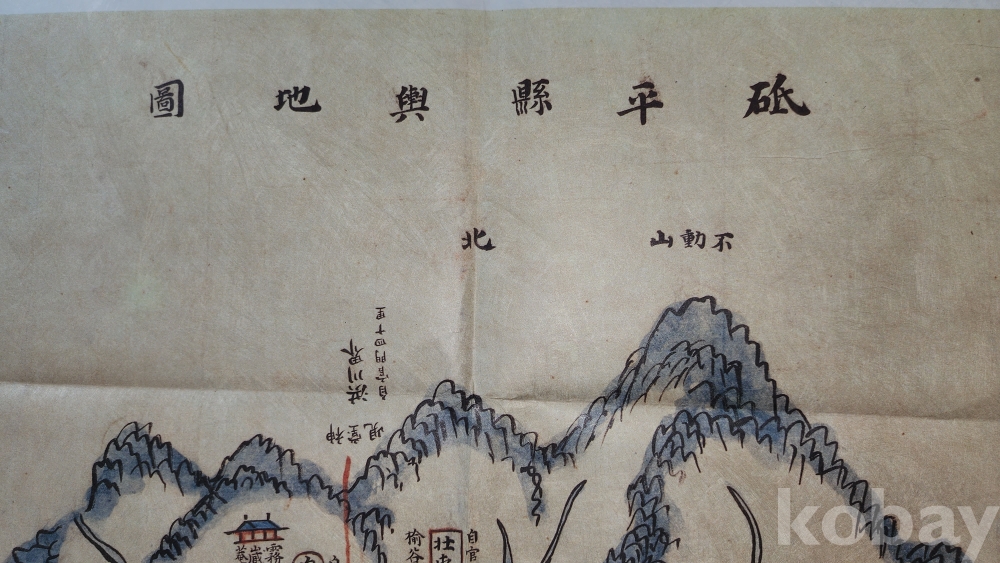 砥平縣輿地圖
不動山
北
洪川界
自官門四十里
神堂峴
霧
藏
菴
自官
楡谷
kobay